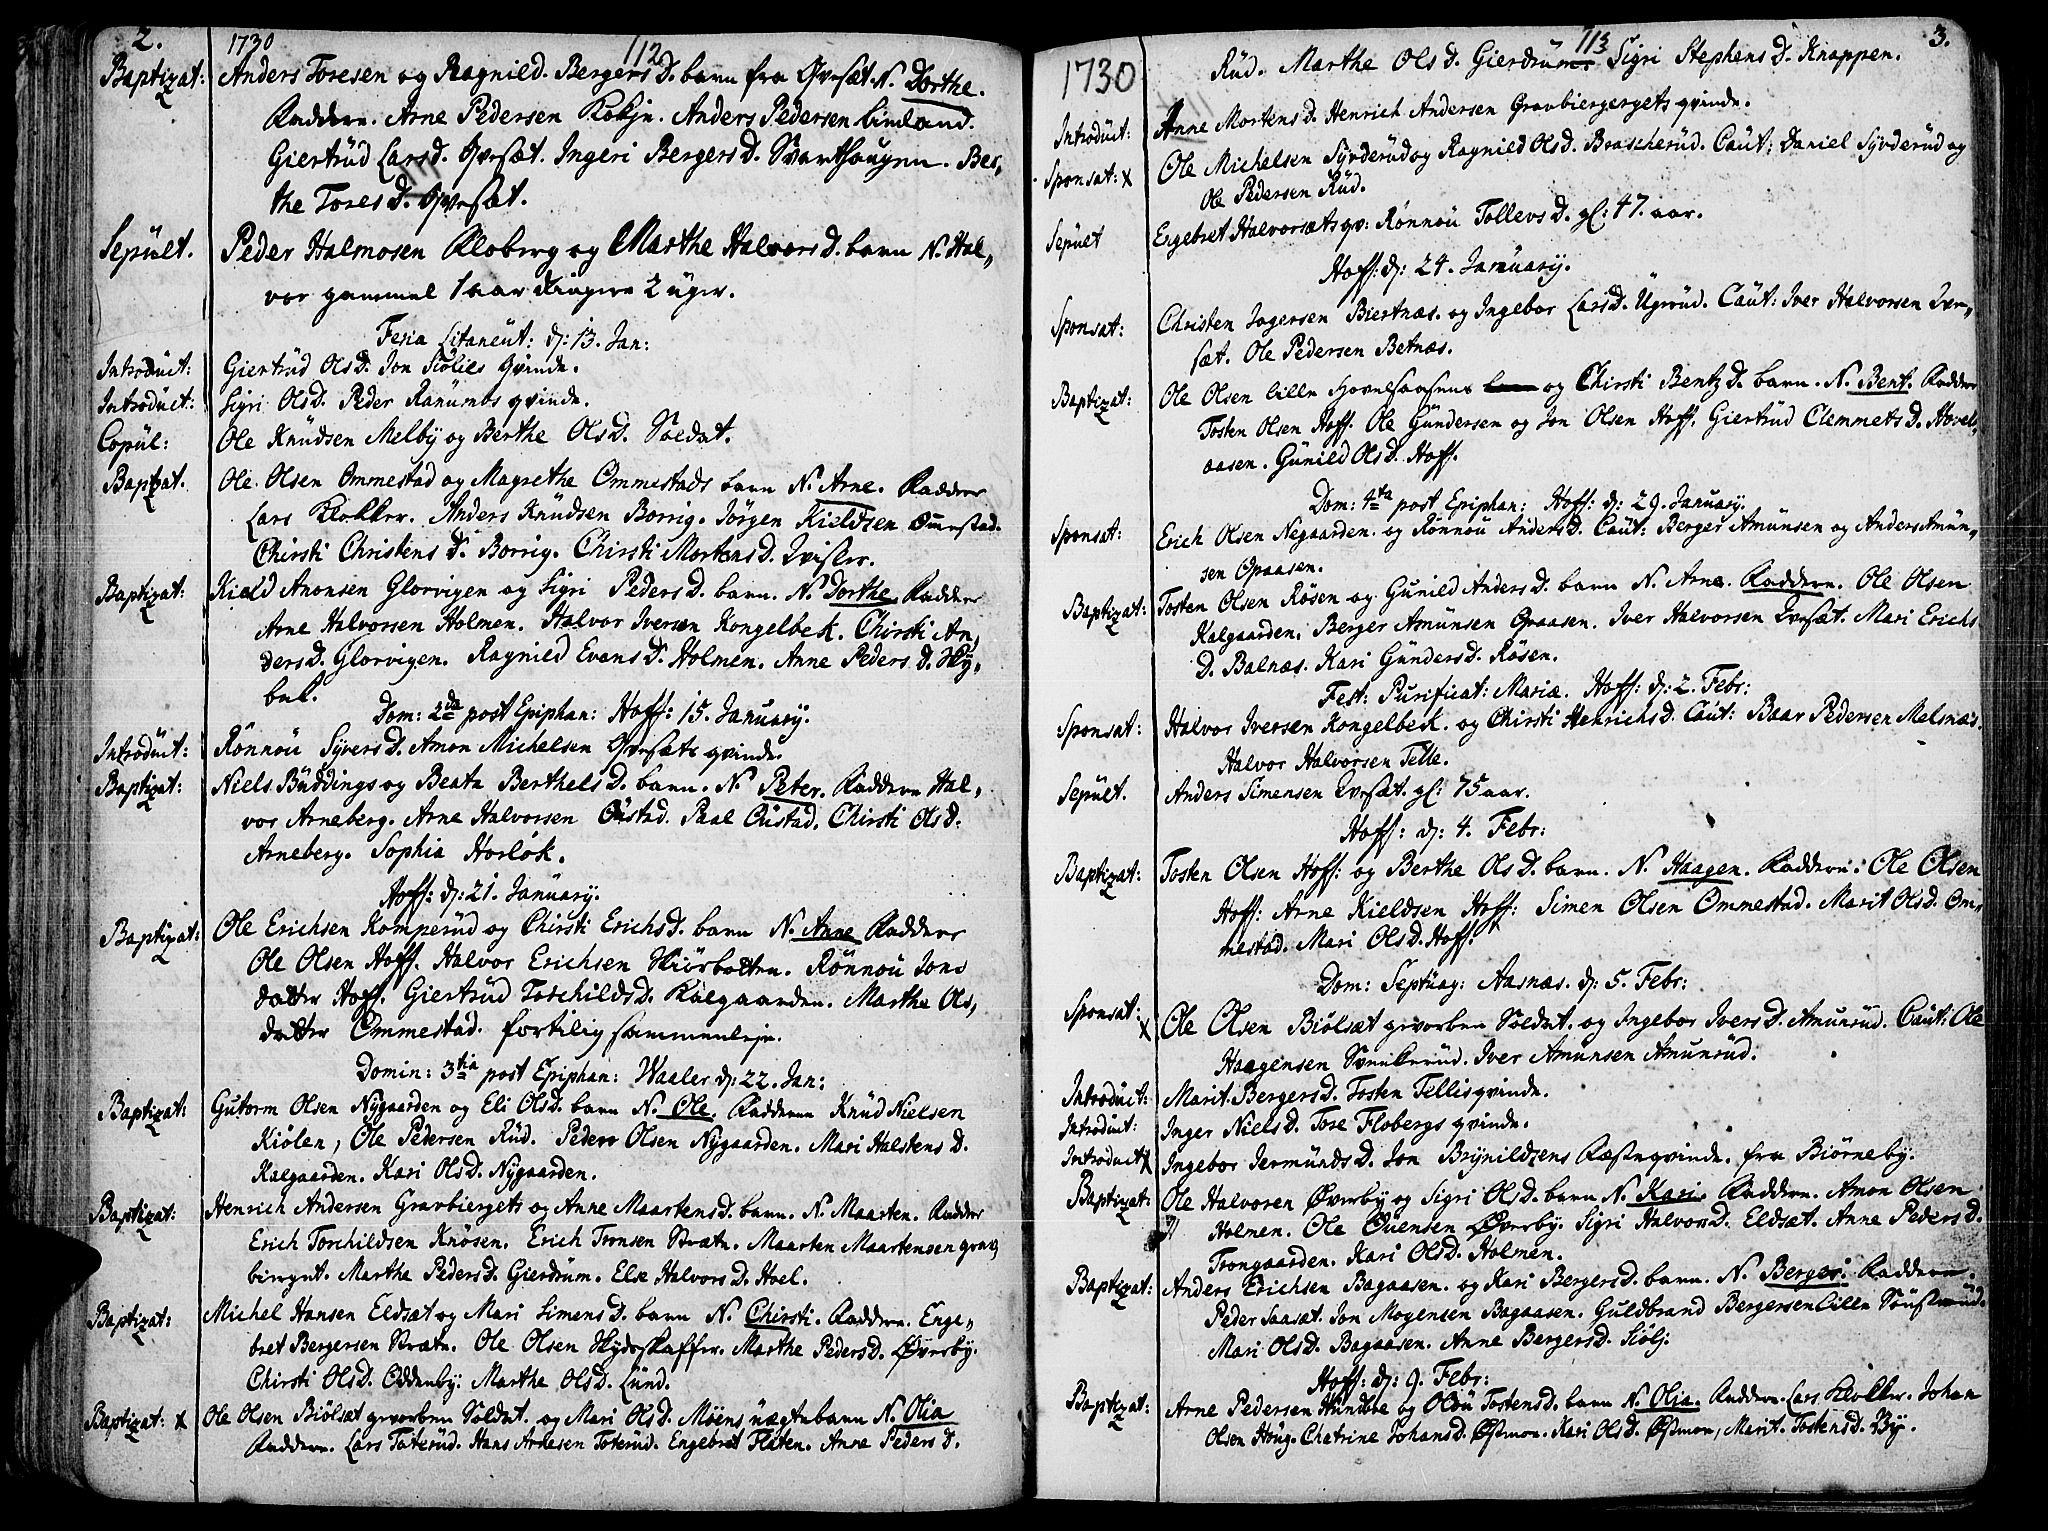 2. 1730 112
Baptizat: Anders Toresen og Ragnild Bergers D. barn fra Qvesæt N. Dorthe.
Faddere. Arne Pedersen Anders Pedersen Eimland.
Giertrüd Lars d. Qvesæt. Ingeri Bergers D. Svarthaugen. Ber,
the Tores D. Qvesæt.
Sepült. Peder Halmosen Kloberg og Marthe Halvors D. barn N. Hal,,
vor gammel 1 aar 2 üger.
Feria Litaneüt: d: 13. Jan:
Introdüct: Giertrüd Ols D. Jon Siölies Qvinde.
Introdüct: Sigri Ols D. Peder Ranümbs qvinde.
Copül: Ole Knüdsen Melby og Berthe Ols D. Soldat.
Baptizat. Ole Olsen Ommestad og Magrethe Ommestads barn N. Arne. Faddere
Lars Klokker. Anders Knüdsen Borrig. Jörgen Kieldsen Omestad.
Chirsti Christens D. Borrig. Chirsti Mortens D. Qvisler.
Baptizat: Kield Amonsen Glorvigen og Sigri Peders D. barn. N. Dorthe. Faddere
Arne Halvorsen Holmen. Halvor Iversen Kongelbek. Chirsti An,
ders D. Glorvigen. Ragnild Evens D. Holmen. Anne Peders D. Ny,
bal.
Dom: 2da post Epiphan: Hoff: 15. January.
Introdüct: Rönnoü Syvers D. Amon Michelsen Qvesæts qvinde.
Baptizat: Niels Büddings og Beata Berthels D. barn. N. Peter. Faddere Hal,
vor Arneberg. Arne Halvorsen Oüstad. Paal Oüstad. Chirsti Ols D.
Arneberg. Sophia Horlök.
Hoff: d: 21. January.
Baptizat: Ole Erichsen Komperüd og Chirsti Erichs D. barn N. Anne Faddere
Ole Olsen Hoff. Halvor Erichsen Skiörbotten. Rönnoü Jons
datter Hoff. Giertrüd Torchilds D. Kalgaarden. Marthe Ols,
datter Ommestad. fortilig sammenleje.
Domin: 3tia post Epiphan: Waaler d: 22. Jan:
Baptizat: Gutorm Olsen Nygaarden og Eli Ols D. barn N. Ole. Faddere Knüd Nielsen
Kiölen, Ole Pedersen Rüd. Peder Olsen Nygaarden. Mari Halstens D.
Kalgaarden. Kari Ols D. Nygaarden.
Baptizat: Henrich Andersen Gravbierget og Anne Maartens d. barn. N. Maarten. Fadder
Erich Torchildsen Knösen. Erich Tronsen Bratn. Maarten Maartensen grav,
bierget. Marthe Peders D. Gierdrüm. Else Halvors D. Hoel.
Baptizat: Michel Hansen Eldsæt og Mari Simens D. barn N. Chirsti. Faddere. Enge,
bret Bergersen Bratn. Ole Olsen Skydskaffer. Marthe Peders D. Øverby.
Chirsti Ols D. Oddenby. Marthe Ols D. Lünd.
Baptizat: x Ole Olsen Biölsæt gevorben Soldat. og Mari Ols D. Möens üægte barn N. Olia
Faddere. Lars Toterüd. Hans Arnesen Toterüd. Engebret Flaten. Anne Peders D.
1730 113 3.
Rüd. Marthe Ols D. Gierdrüm. Sigri Stephens D. Knappen.
Introdüct: Anne Mortens D. Henrich Andersen Gravbiergergets qvinde.
Sponsat: x Ole Michelsen Syverüd og Ragnild Ols D. Brascherüd. Caüt: Daniel Syvderüd og
Ole Pedersen Rüd.
Sepült Engebret Halvorsæts qv: Rönnoü Tollevs D. gl: 47. aar.
Hoff: d: 24. January.
Sponsat: Christen Jogersen Biertnæs. og Ingebor Lars D. Ugrüd. Caüt: Iver Halvorsen Qve,
sæt. Ole Pedersen Betnæs.
Baptizat: Ole Olsen lille Hovelsaasens og Chirsti Bentz D. barn. N. Bent. Faddere
Tosten Olsen Hoff. Ole Gündersen og Jon Olsen Hoff. Giertrüd Clemmets D. Hovel,
aasen. Günild Ols D. Hoff.
Dom: 4ta post Epiphan: Hoff: d: 29. January.
Sponsat: Erich Olsen Negaarden. og Rönnoü Anders D. Caüt: Berger Amünsen og Anders Amün,
sen Opaasen.
Baptizat: Tosten Olsen Rösen og Günild Anders D. barn N. Arne. Faddere. Ole Olsen
Kalgaarden. Berger Amünsen Opaasen. Iver Halvorsen Qvesæt. Mari Erichs
D. Balnæs. Kari Günders D. Rösen.
Fest: Purificat: Mariæ. Hoff: d: 2. Febr:
Sponsat: Halvor Iversen Kongelbeck. og Chirsti Henrichs D. Caüt: Baar Pedersen Melsnæs.
Halvor Halvorsen Telle.
Sepült. Anders Simensen Qvesæt. gl: 75 aar.
Hoff: d: 4. Febr:
Baptizat: Tosten Olsen Hoff: og Berthe Ols D. barn. N. Haagen. Faddere: Ole Olsen
Hoff: Arne Kieldsen Hoff: Simen Olsen Ommestad. Marit Ols D. Om,
mestad. Mari Ols D. Hoff.
Dom: Septüag: Aasnæs. d: 5. Febr:
Sponsat: x Ole Olsen Biölsæt gevorben Soldat. og Ingebor Ivers D. Amunrüd. Caüt: Ole
Haagensen Svenkerüd. Iver Amünsen Amunrüd.
Introdüct: Marit Bergers D. Tosten Tellis qvinde.
Introdüct: Inger Niels D. Tore Flobergs qvinde.
Introdüct x Ingebor Jermünds D. Jon Brynildsens Festeqvinde. fra Biörneby.
Baptizat: Ole Halvoren Øverby og Sigri Ols D. barn N. Kari. Faddere. Amon Olsen
Holmen. Ole Evensen Øverby. Sigri Halvors D. Eldsæt. Anne Peders D.
Trongaarden. Kari Ols D. Holmen.
Baptizat: Anders Erichsen Bagaasen. og Kari Bergers D. barn. N. Berger. Faddere.
Peder Saasæt. Jon Mogensen Bagaasen. Guldbrand Bergersen lille
Mari Ols D. Bagaasen. Anne Bergers D. Siölj.
Hoff: d: 9. Febr:
Baptizat: Arne Pedersen Hundebe og Oldü Tostens D. barn N. Olia. Faddere. Lars Klokker. Johan
Olsen Höüg. Chatrine Johans D. Østmon. Kari Ols D. Østmon, Marit. Tostens D. By.